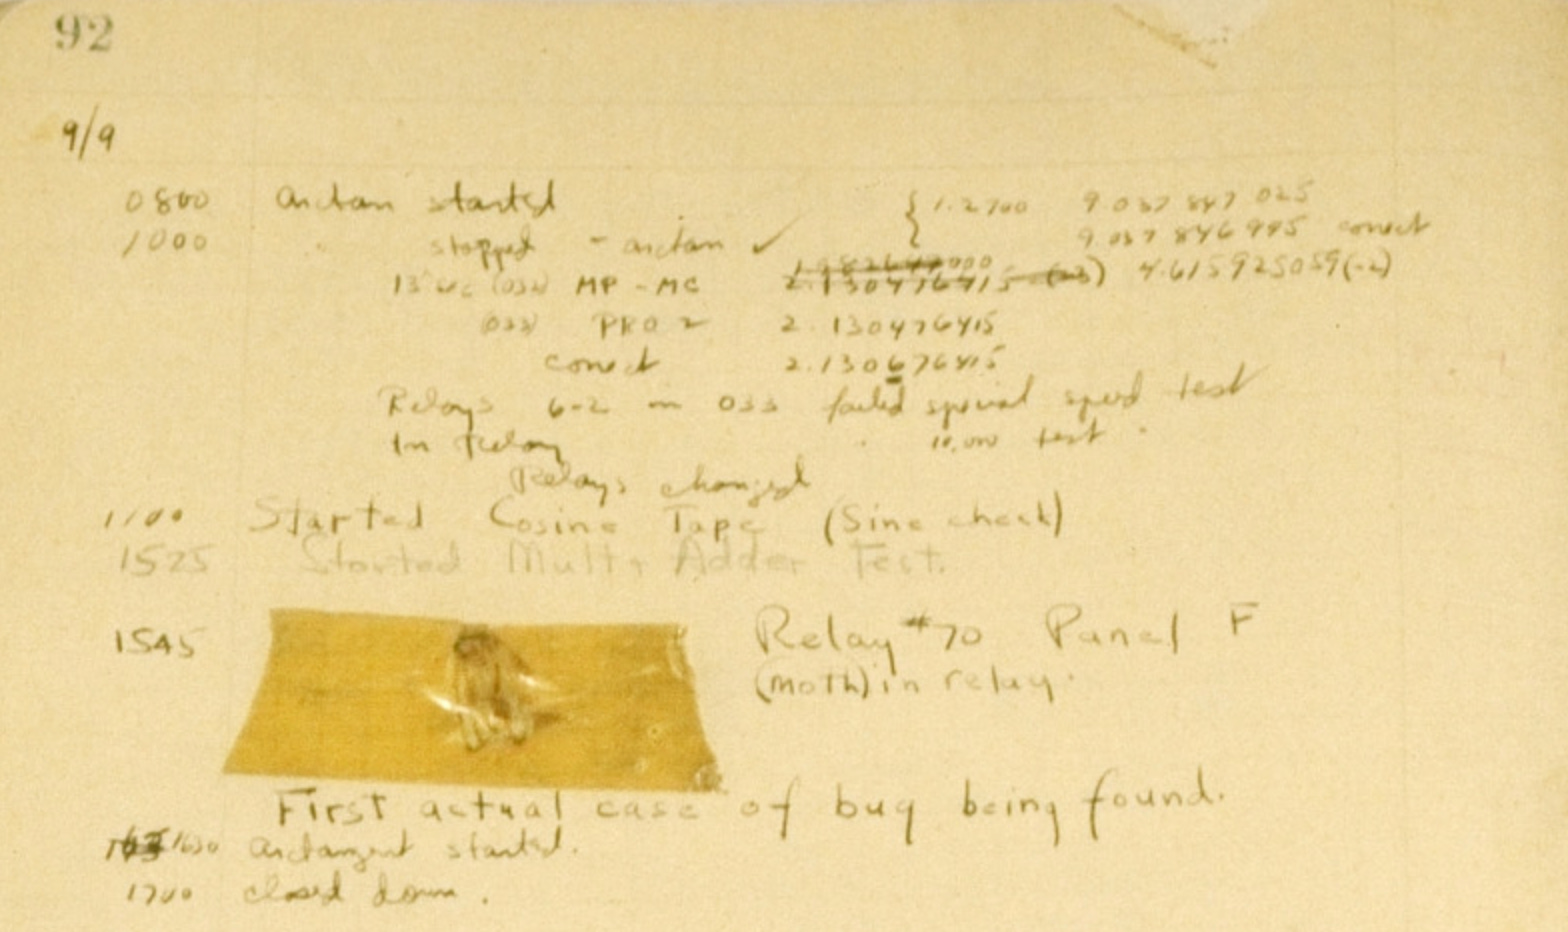 92
9/9
0800 arctan started { 1.2700 9.037 847 025
1000 " stopped - arctan ✓ 9.037 846 995 correct
13"uc (032) MP - MC 2.130476415 4.615925059(-2)
(033) PRO 2 2.130476415
correct 2.130676415
Relays 6-2 in 033 failed special speed test
In Relay " 10,000 test .
Relays changed
1100 Started Cosine Tape (Sine check)
1525 Started Mult+ Adder Test.
1545 Relay #70 Panel F
(moth) in relay.
First actual case of bug being found.
1630 arctangent started.
1700 closed down.